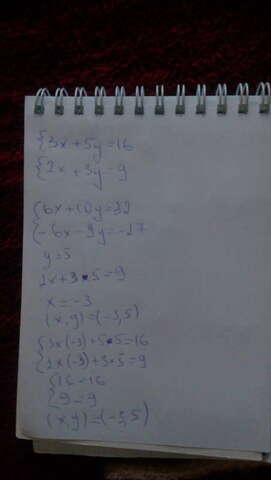 {3x+5y=16
{2x+3y=9
{6x+10y=32
{-6x-9y=-27
y=5
2x+3•5=9
x=-3
(x,y)=(-3,5)
{3x(-3)+5•5=16
{2x(-3)+3•5=9
{16=16
{9=9
(x,y)=(-3,5)